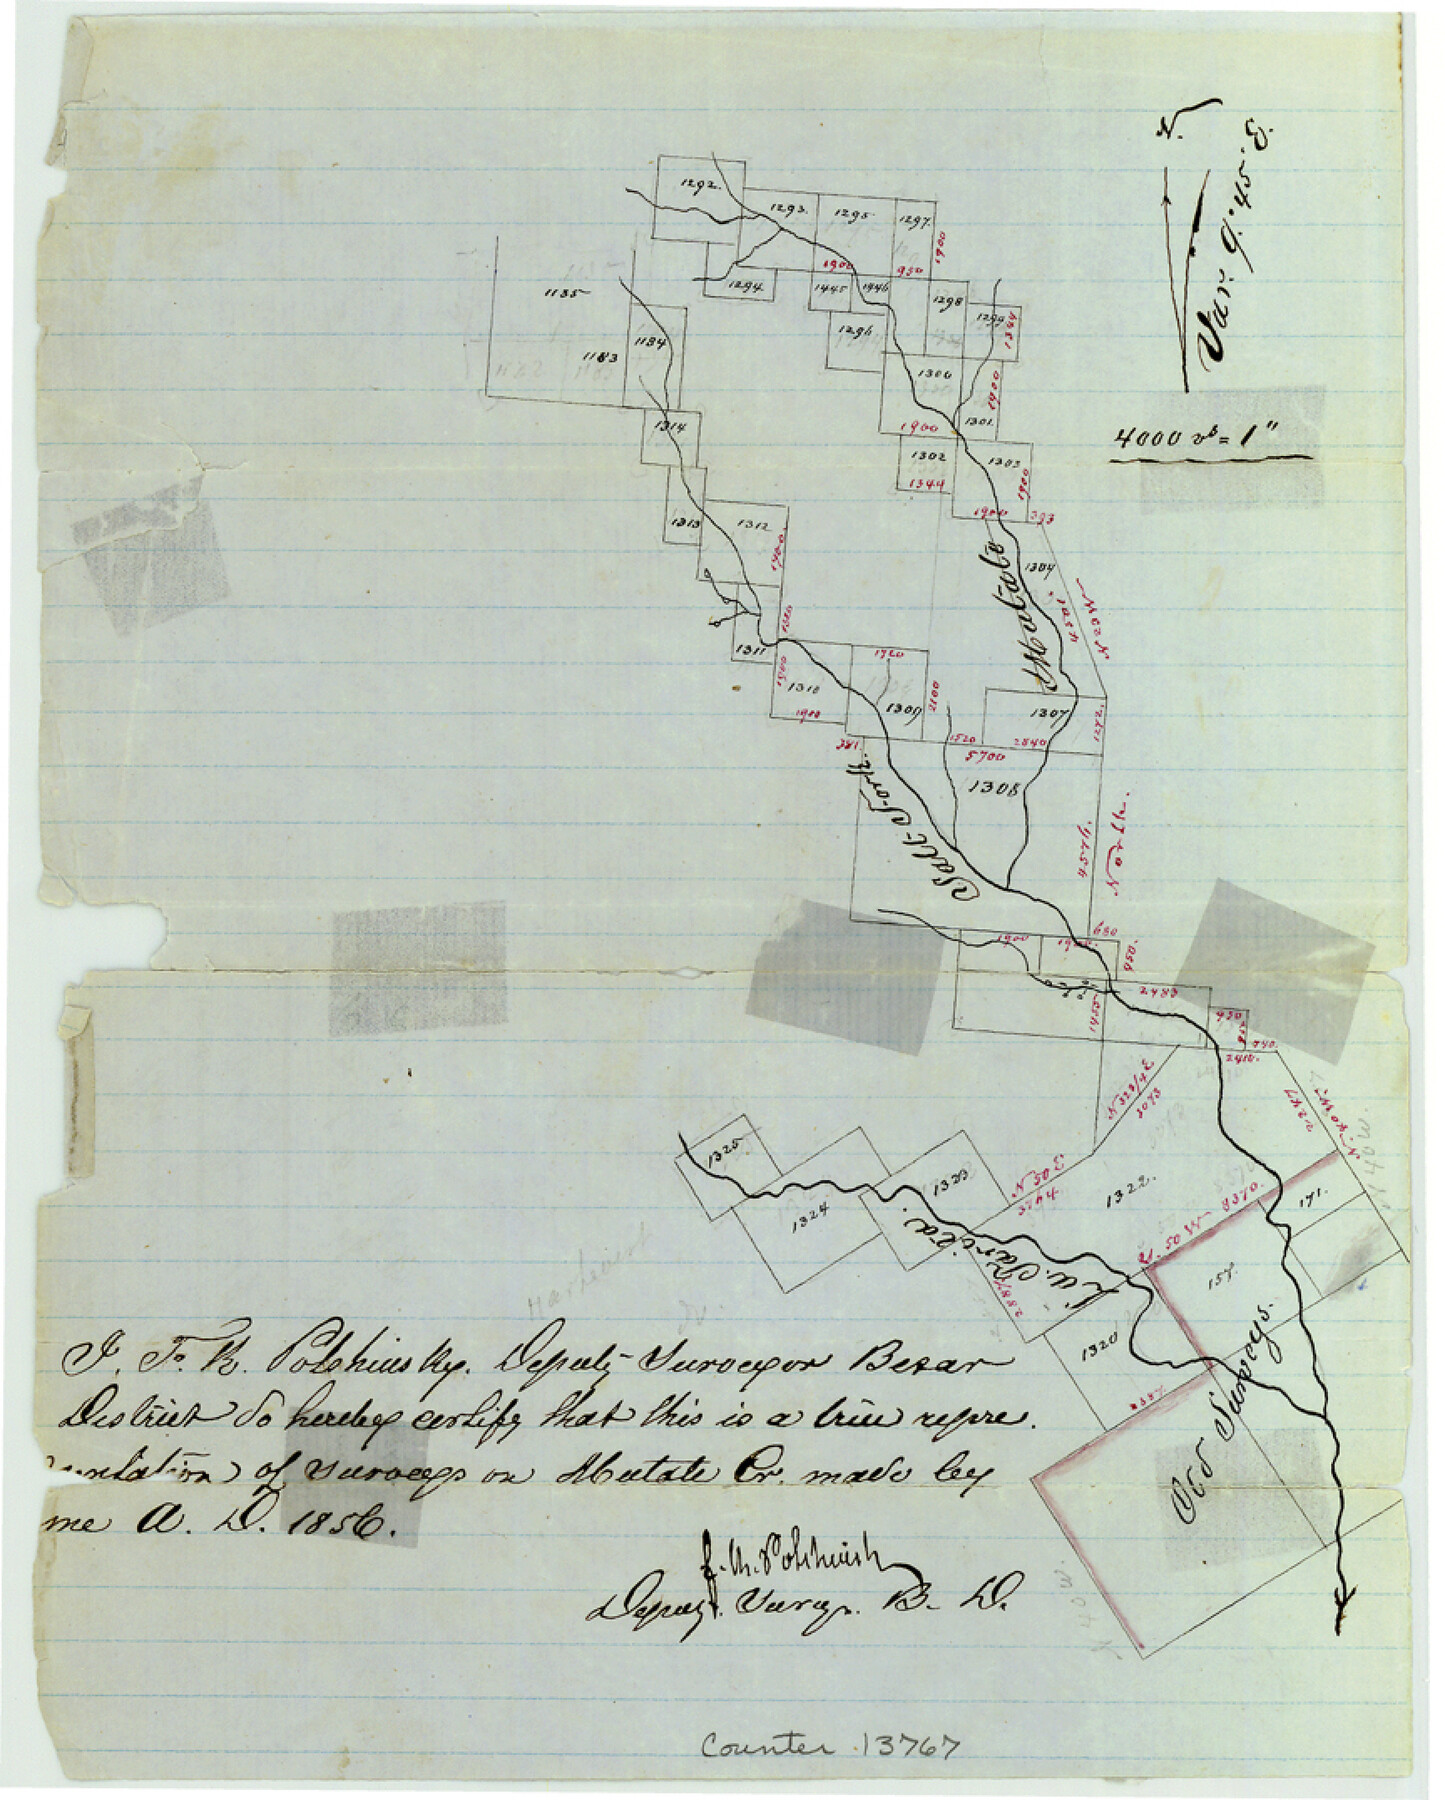 N.
Var. 9° 45' E.
4000 vs = 1"
1292.
1293.
1295
1297.
1900
1900
950
1294
1445
1446
1298
1299
1344
1296
1135
1134
1183
1300
1900
1301.
1900
1314
1302
1344
1303
1900
1900
393
1313
1312
1304
Mutate
1311
1900
1310
1900
1720
1309
2100
1307
1272.
1520
2840
5700
381
1308
Salt Fork.
4576.
North.
1900
680
950.
1455
2483
950
240.
2410.
N 32 3/4 E
3073
2247
N. 40 W.
N 40 W.
1325
1324
1323
N 50 E
3744
1322.
S. 50 W 8370.
171.
157.
1320
Old Surveys.
N 40 W.
I, F. K. Polchinsky. Deputy Surveyor Bexar
District do hereby certify that this is a true repre.
sentation) of surveys on Mutate Cr. made by
me A. D. 1856.
Deputy. Survyr. B. D.
Counter 13767